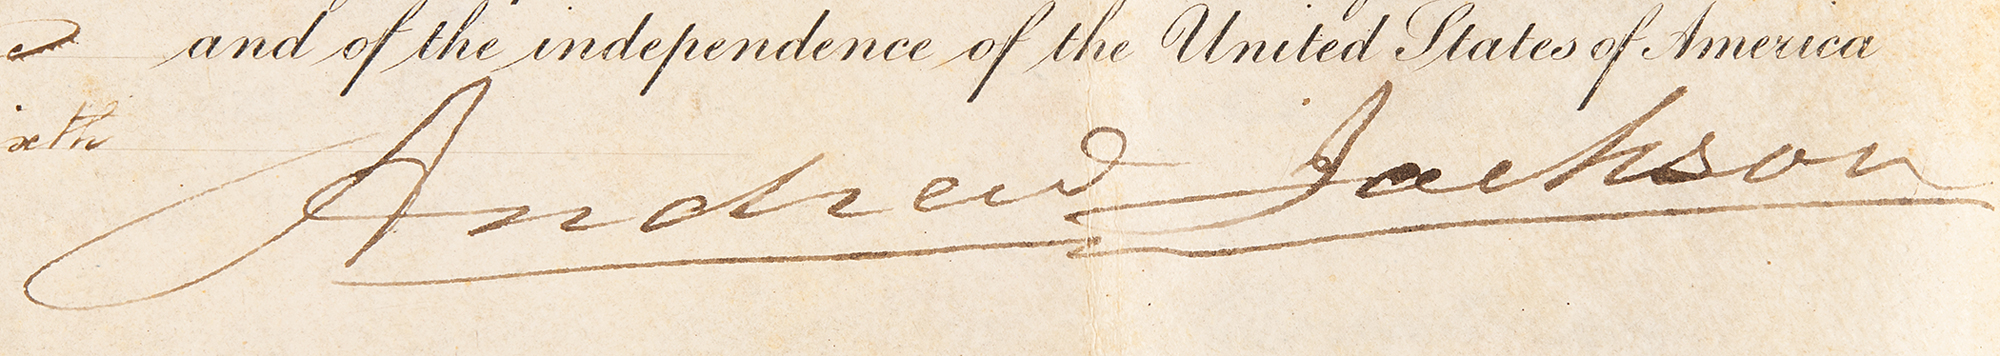 and of the independence of the United States of America
ixth
Andrew Jackson